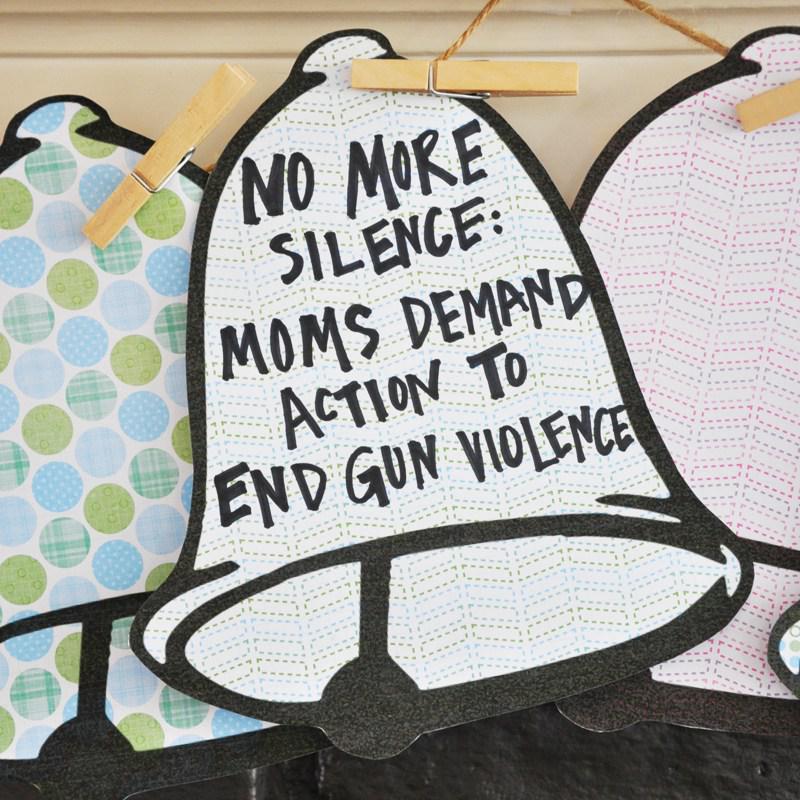 NO MORE
SILENCE:
MOMS DEMAND
ACTION TO
END GUN VIOLENCE